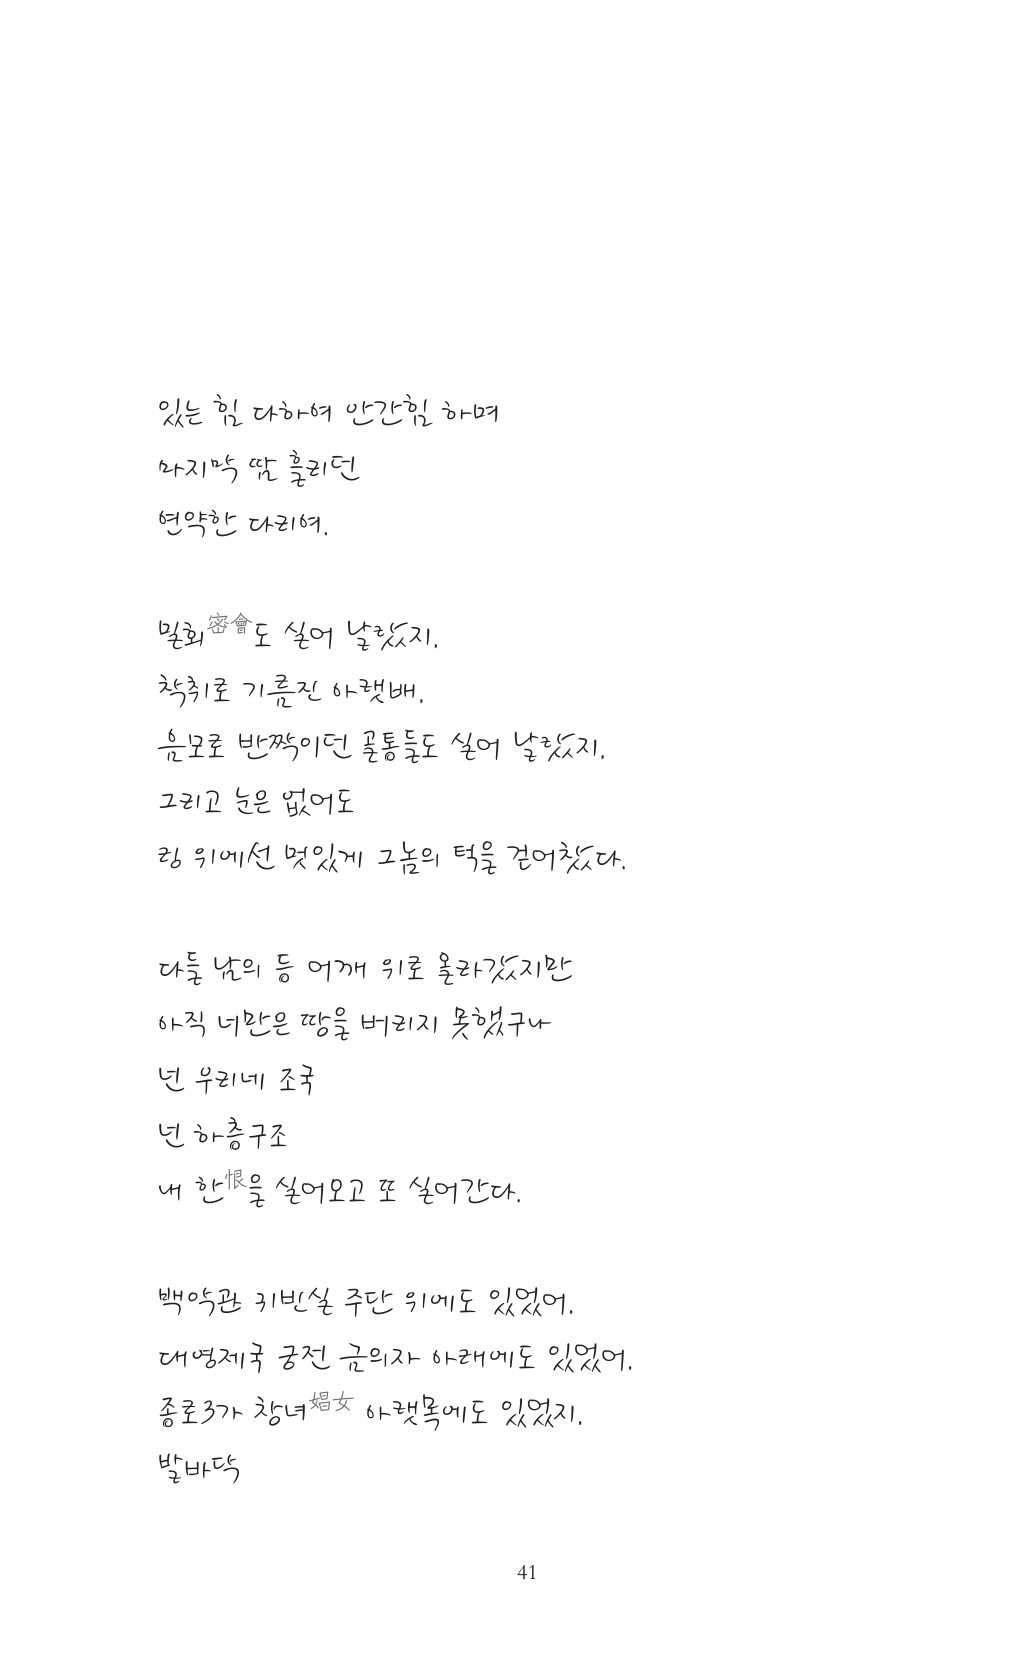 있는 힘 다하여 안간힘 하며
마지막 땀 흘리던
연약한 다리여.
밀회密會도 실어 날랐지.
착취로 기름진 아랫배.
음모로 반짝이던 골통들도 실어 날랐지.
그리고 눈은 없어도
링 위에선 멋있게 그놈의 턱을 걷어찼다.
다들 남의 등 어깨 위로 올라갔지만
아직 너만은 땅을 버리지 못했구나
넌 우리네 조국
넌 하층구조
내 한恨을 실어오고 또 실어간다.
백악관 귀빈실 주단 위에도 있었어.
대영제국 궁전 금의자 아래에도 있었어.
종로3가 창녀娼女 아랫목에도 있었지.
발바닥
41